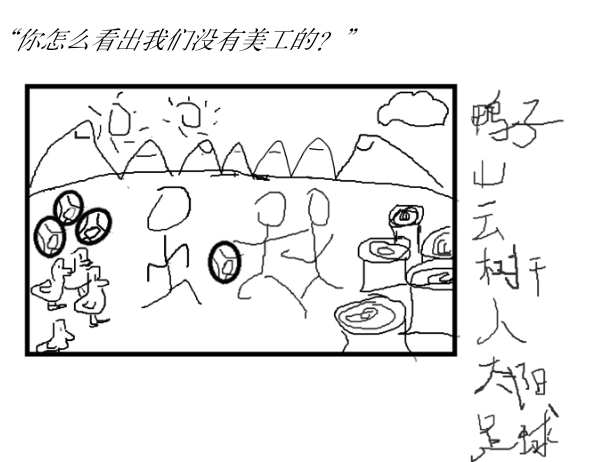 “你怎么看出我们没有美工的？”
鸭子
山
云
树干
人
太阳
足球